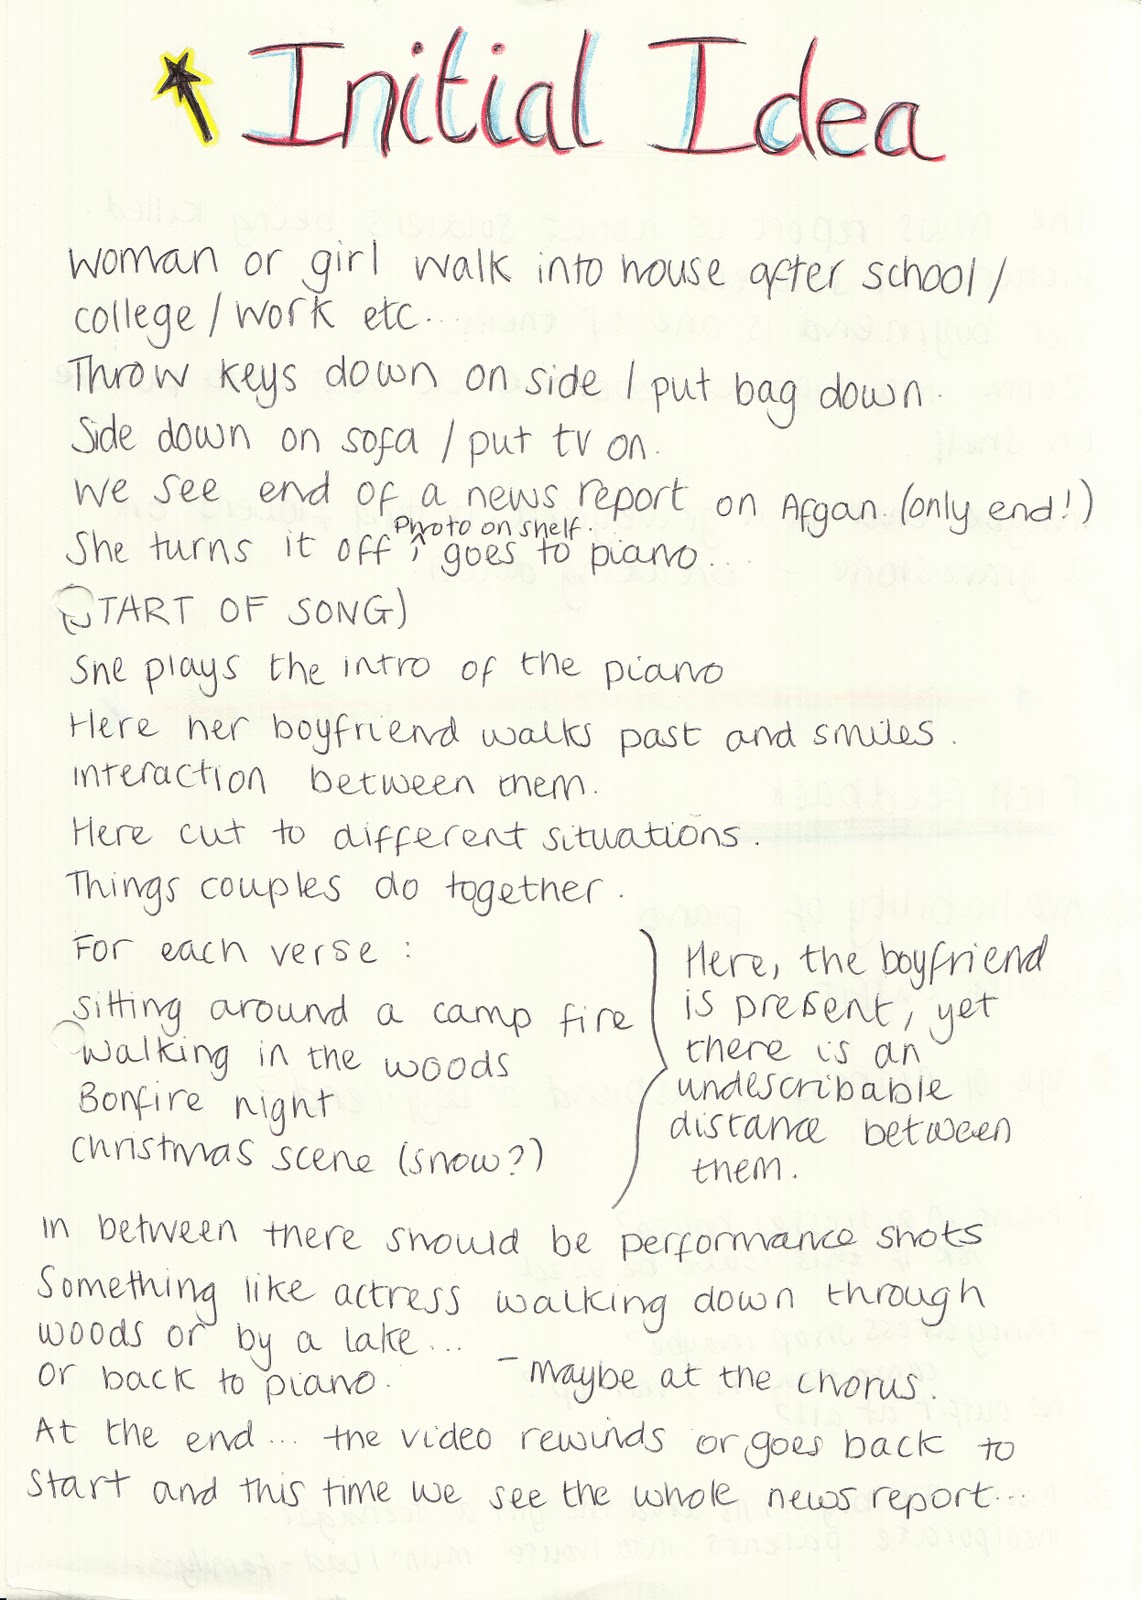 Initial Idea
woman or girl walk into house after school /
college / work etc...
Throw keys down on side / put bag down.
Side down on sofa / put tv on.
We see end of a news report on Afgan. (only end!)
Photo on shelf.
She turns it off ^ goes to piano...
(START OF SONG)
She plays the intro of the piano
Here her boyfriend walks past and smiles.
interaction between them.
Here cut to different situations.
Things couples do together.
For each verse :
sitting around a camp fire
walking in the woods
Bonfire night
christmas scene (snow?)
Here, the boyfriend
is present, yet
there is an
undescribable
distance between
them.
In between there should be performance shots
Something like actress walking down through
woods or by a lake...
or back to piano.
- Maybe at the chorus.
At the end... the video rewinds or goes back to
start and this time we see the whole news report...